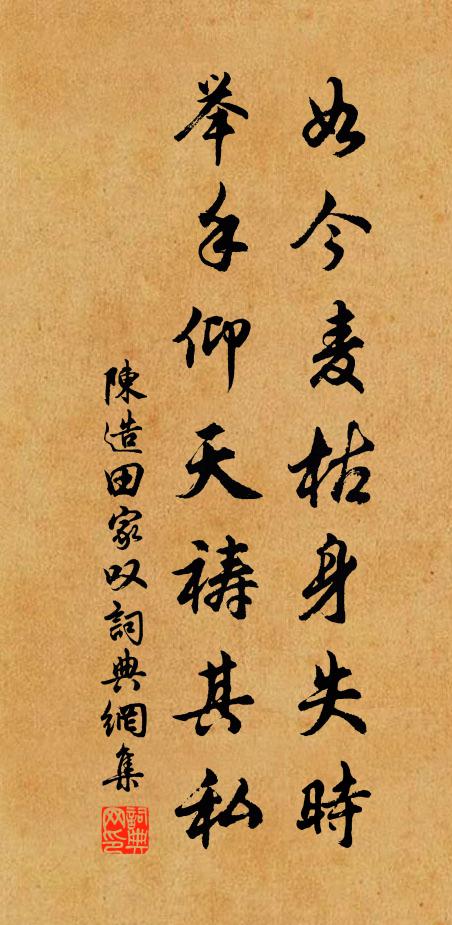 如今麦枯身失時
举手仰天祷其私
陳造田家叹詞典網集
詞典网印